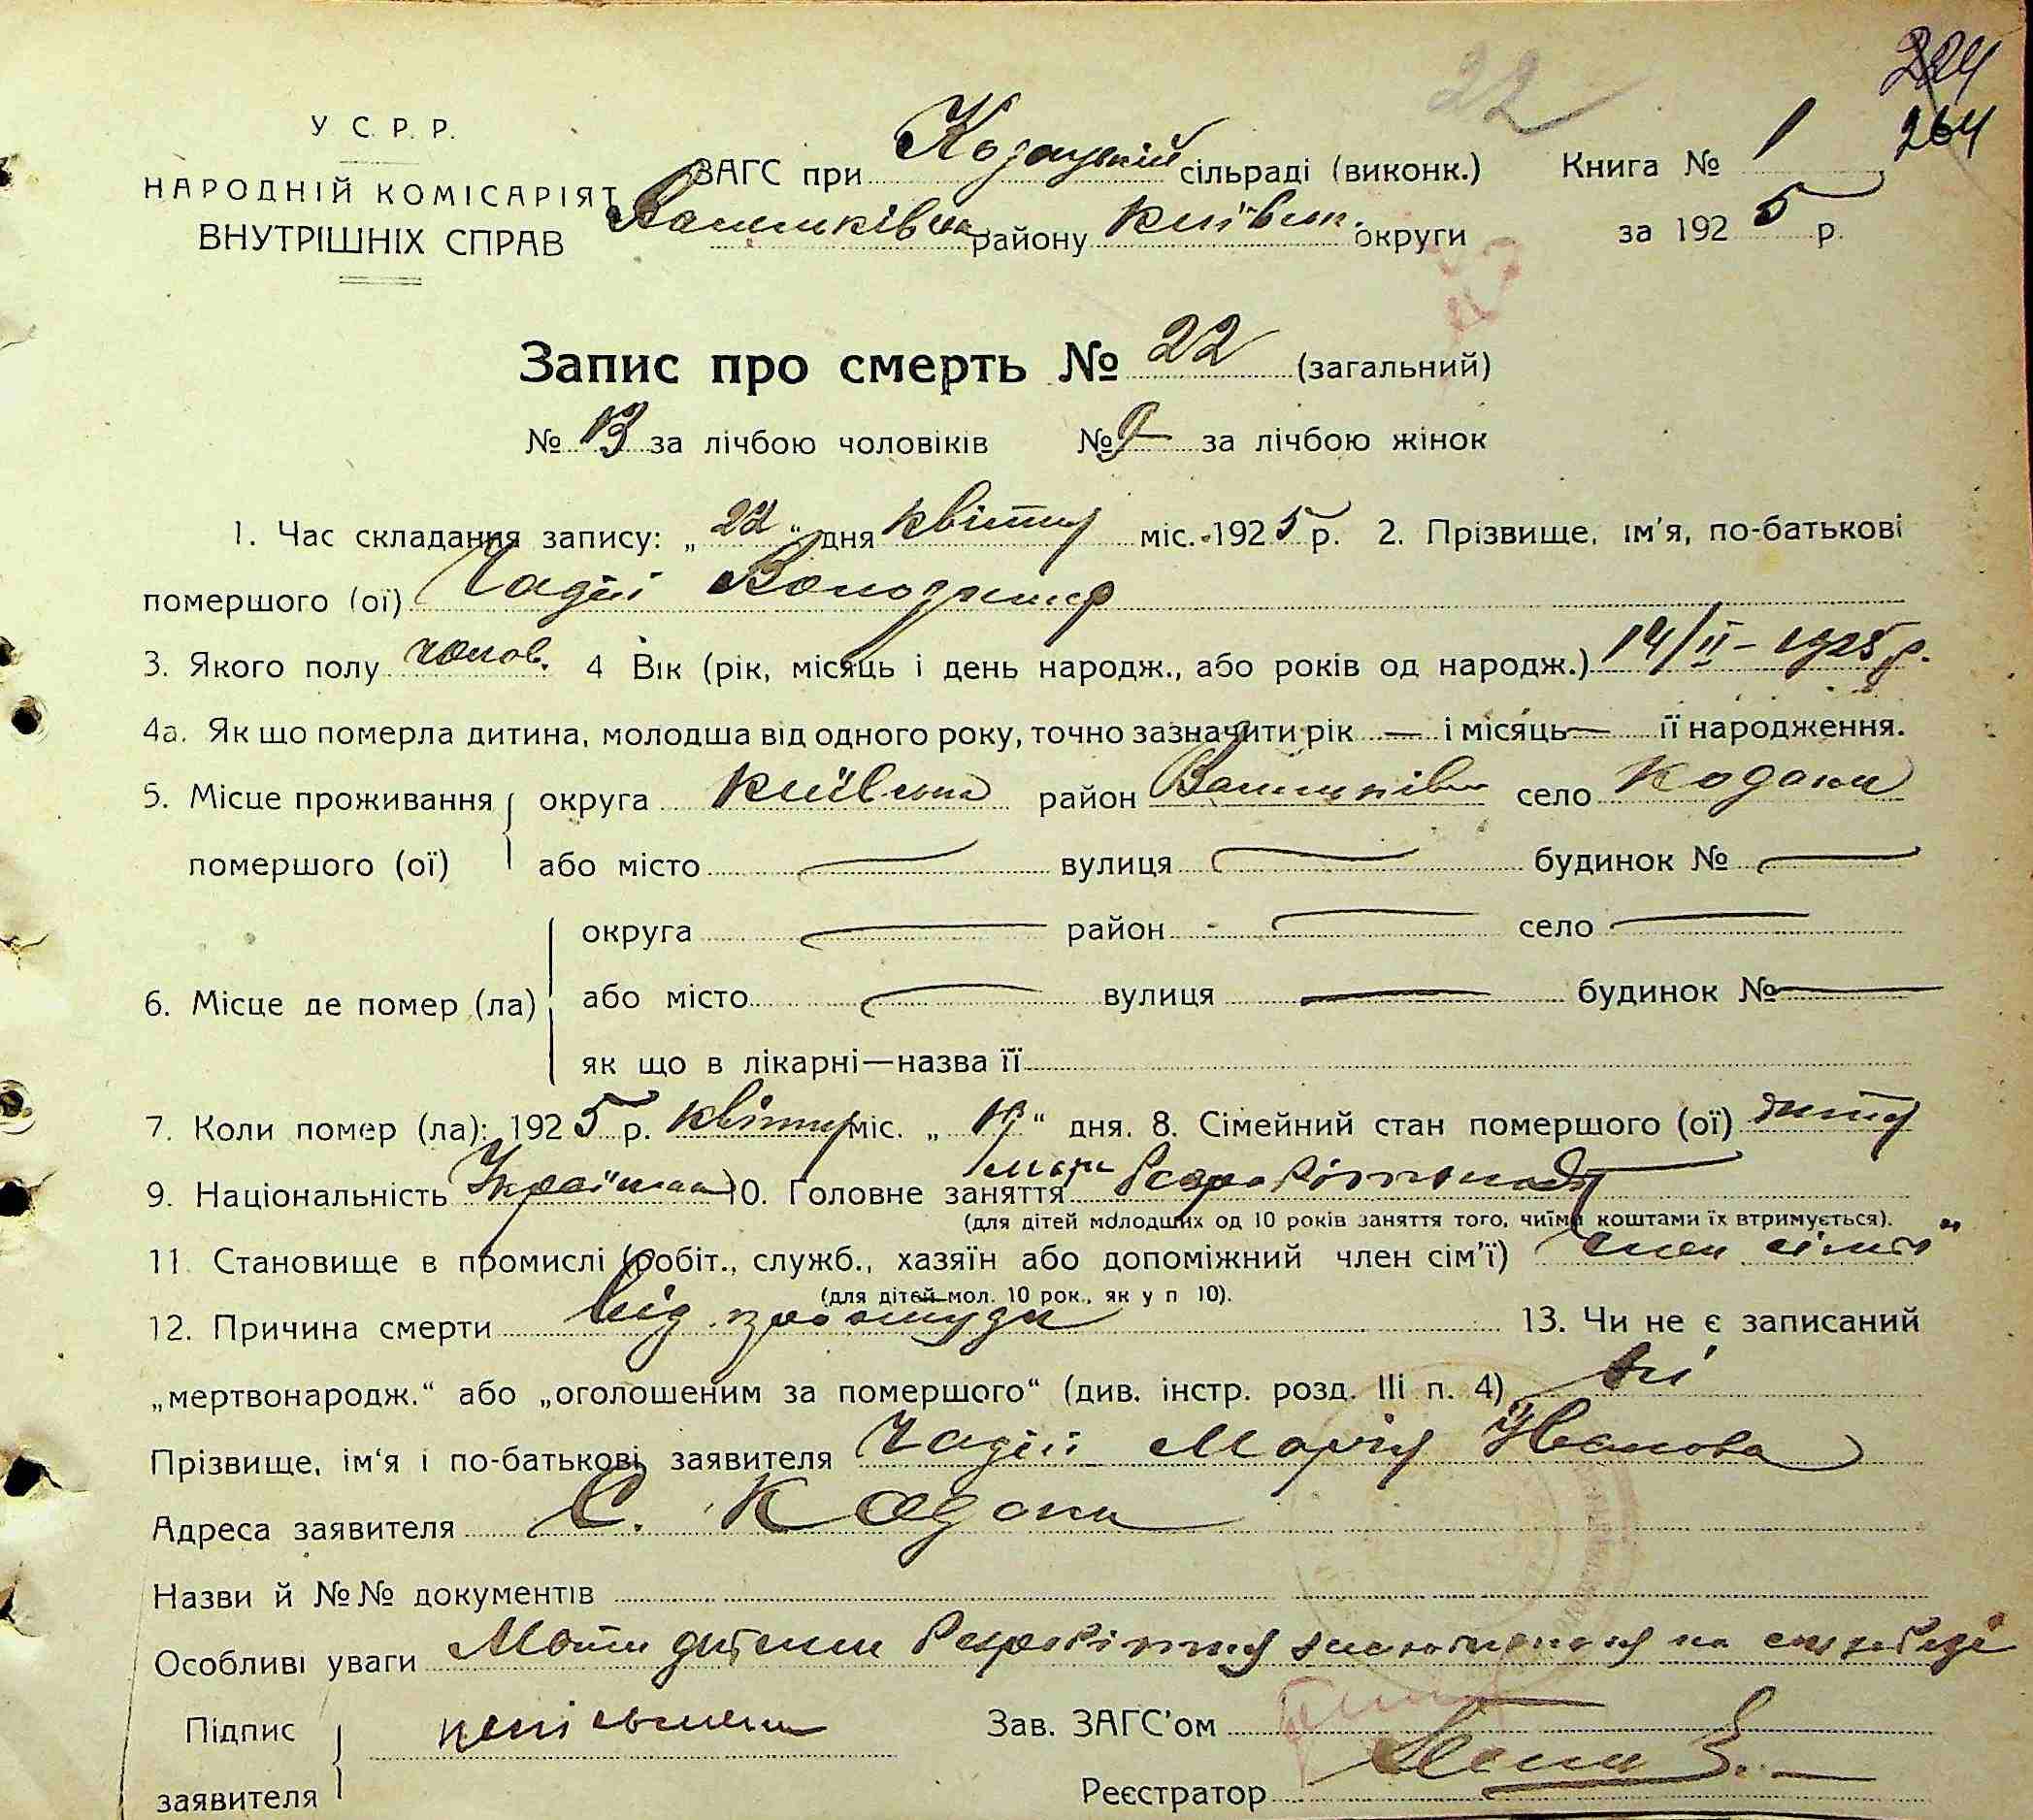 22
224
264
У С. Р. Р.
НАРОДНІЙ КОМІСАРІЯТ
ВНУТРІШНІХ СПРАВ
ЗАГС при Козацькій сільраді (виконк.) Книга № 1
району Київськ. округи за 1925 р.
Запис про смерть № 22 (загальний)
№ 13 за лічбою чоловіків № 9 за лічбою жінок
1. Час складання запису: „22" дня квітня міс. 1925 р. 2. Прізвище, ім'я, по-батькові
помершого (ої) Чадій Володимир
3. Якого полу чолов. 4 Вік (рік, місяць і день народж., або років од народж.) 14/II – 1925 р.
4а. Як що померла дитина, молодша від одного року, точно зазначити рік — і місяць — її народження.
5. Місце проживання округа Київська район село Кодаки
помершого (ої) або місто — вулиця — будинок № —
округа — район — село —
6. Місце де помер (ла) або місто — вулиця — будинок № —
як що в лікарні—назва її
7. Коли помер (ла): 1925 р. квітня міс. „ “ дня. 8. Сімейний стан помершого (ої) дитя
9. Національність 10. Головне заняття
(для дітей молодших од 10 років заняття того, чиїми коштами їх втримується).
11. Становище в промислі (робіт., служб., хазяїн або допоміжний член сім'ї) член сім'ї
(для дітей мол. 10 рок., як у п 10).
12. Причина смерти від простуди 13. Чи не є записаний
„мертвонародж.“ або „оголошеним за померщого“ (див. інстр. розд. III п. 4) ні
Прізвище, ім'я і по-батькові заявителя Чадій Марія Іванова
Адреса заявителя С. Кодаки
Назви й №№ документів
Особливі уваги Мати дитини на
Підпис неписьмена Зав. ЗАГС'ом
заявителя Реєстратор